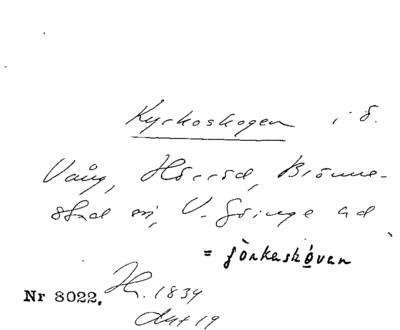 Kyrkoskogen i ö.
Vång, Hörröd, Brönne-
stad sn, V. Göinge hd
= ɟörkaskǫ́van
Nr 8022. H. 1834